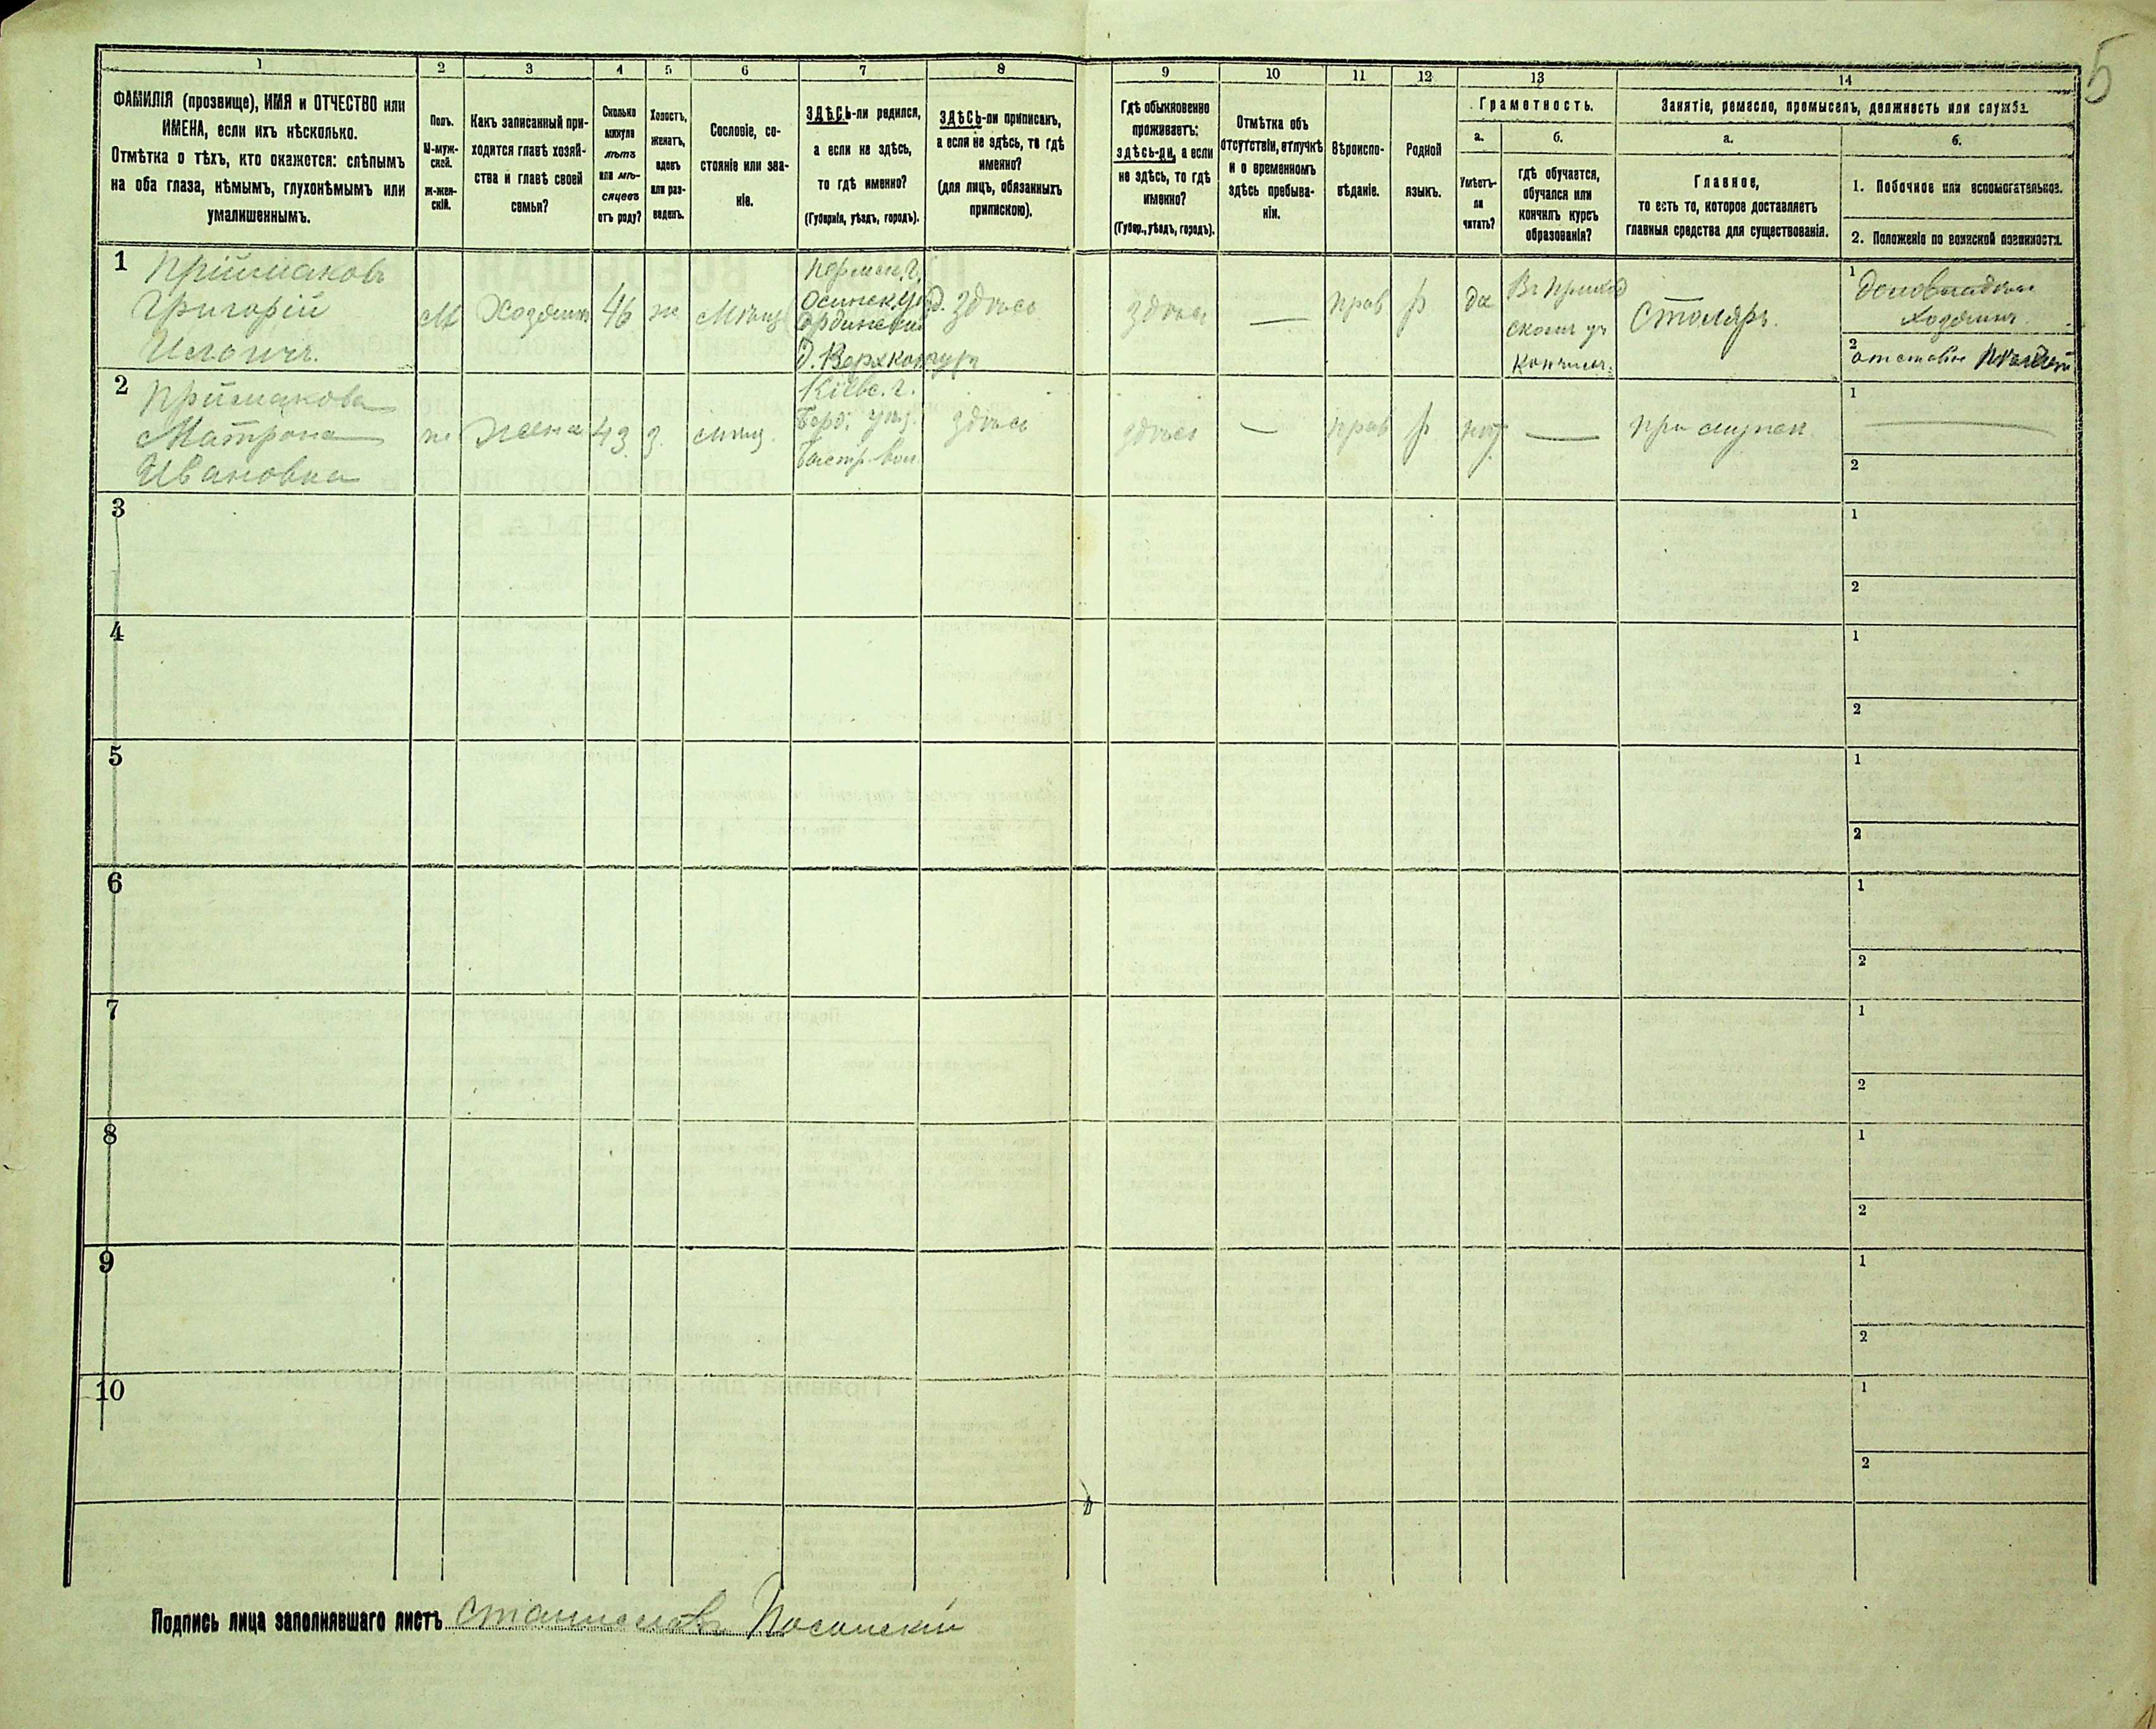 5
1
2
3
4
5
6
7
8
9
10
11
12
13
14
ФАМИЛІЯ (прозвище), ИМЯ и ОТЧЕСТВО или
ИМЕНА, если ихъ нѣсколько.
Отмѣтка о тѣхъ, кто окажется: слѣпымъ
на оба глаза, нѣмымъ, глухонѣмымъ или
умалишеннымъ.
Полъ.
М-муж-
ской.
ж-жен-
скій.
Какъ записанный при-
ходится главѣ хозяй-
ства и главѣ своей
семьи?
Сколько
минуло
лѣтъ
или мѣ-
сяцевъ
отъ роду?
Холостъ,
женатъ,
вдовъ
или раз-
веденъ.
Сословіе, со-
стояніе или зва-
ніе.
ЗДѢСЬ-ли родился,
а если не здѣсь,
то гдѣ именно?
(Губернія, уѣздъ, городъ).
ЗДѢСЬ-ли приписанъ,
а если не здѣсь, то гдѣ
именно?
(для лицъ, обязанныхъ
припискою).
Гдѣ обыкновенно
проживаетъ:
здѣсь-ли, а если
не здѣсь, то гдѣ
именно?
(Губер., уѣздъ, городъ).
Отмѣтка объ
отсутствіи, отлучкѣ
и о временномъ
здѣсь пребыва-
ніи.
Вѣроиспо-
вѣданіе.
Родной
языкъ.
Грамотность.
а.
Умѣетъ-
ли
читать?
б.
гдѣ обучается,
обучался или
кончилъ курсъ
образованія?
Занятіе, ремесло, промыселъ, должность или служба.
а.
Главное,
то есть то, которое доставляетъ
главныя средства для существованія.
б.
1. Побочное или вспомогательное.
2. Положеніе по воинской повинности.
1
Приймаковъ
Григорій
М
Хозяинъ
46
ж
Мѣщ
Пермск. г.
Осинск. уѣзд.
Ординской
д.
здѣсь
здѣсь
—
прав
р
да
Въ приход
скомъ уч
кончилъ.
Столяръ.
1
Домовладѣл
хозяинъ.
2
отставн
2
Приймакова
Матрона
Ивановна
ж
жена
43
з.
мѣщ.
Кіевс. г.
Берд. уѣз.
здѣсь
здѣсь
—
прав
р
нѣт
—
при мужѣ
1
2
3
1
2
4
1
2
5
1
2
6
1
2
7
1
2
8
1
2
9
1
2
10
1
2
Подпись лица заполнявшаго листъ Станиславъ